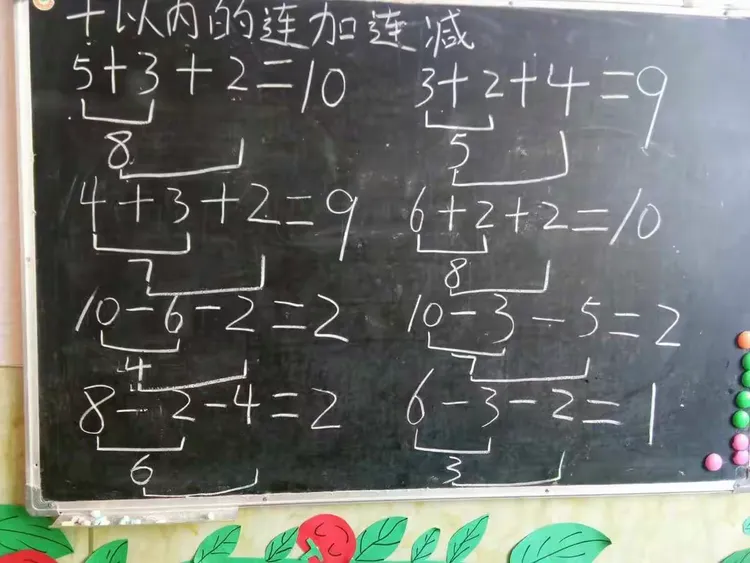 十以内的连加连减
5+3+2=10 3+2+4=9
8 5
4+3+2=9 6+2+2=10
7 8
10-6-2=2 10-3-5=2
4 7
8-2-4=2 6-3-2=1
6 3